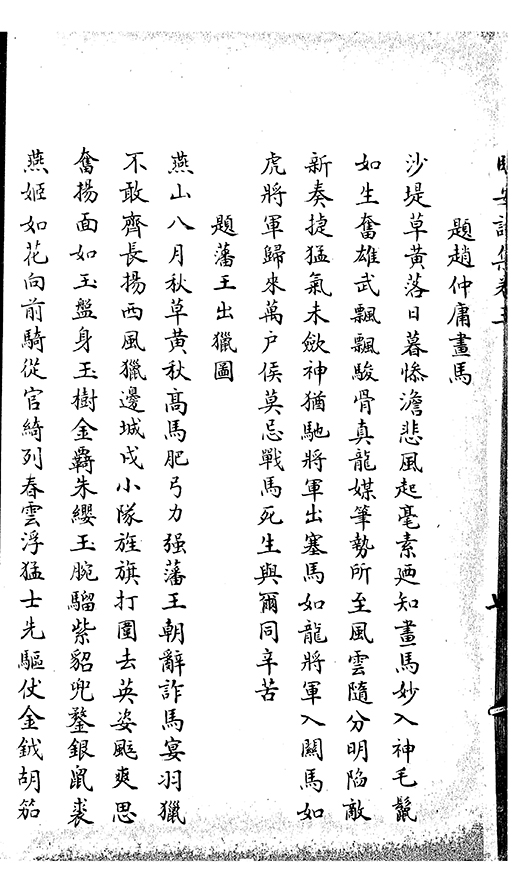 題趙仲庸畫馬
沙堤草黃落日暮慘澹悲風起毫素廼知畫馬妙入神毛鬣
如生奮雄武飄飄駿骨真龍媒筆勢所至風雲隨分明陷敵
新奏捷猛氣未斂神猶馳將軍出塞馬如龍將軍入關馬如
虎將軍歸來萬户侯莫忌戰馬死生與爾同辛苦
題藩王出獵圖
燕山八月秋草黃秋高馬肥弓力强藩王朝辭詐馬宴羽獵
不敢齊長揚西風獵邊城戍小隊旌旗打圍去英姿颯爽思
奮揚面如玉盤身玉樹金覉朱纓玉腕騮紫貂兜鍪銀鼠裘
燕姬如花向前騎從官綺列春雲浮猛士先驅仗金鉞胡笳